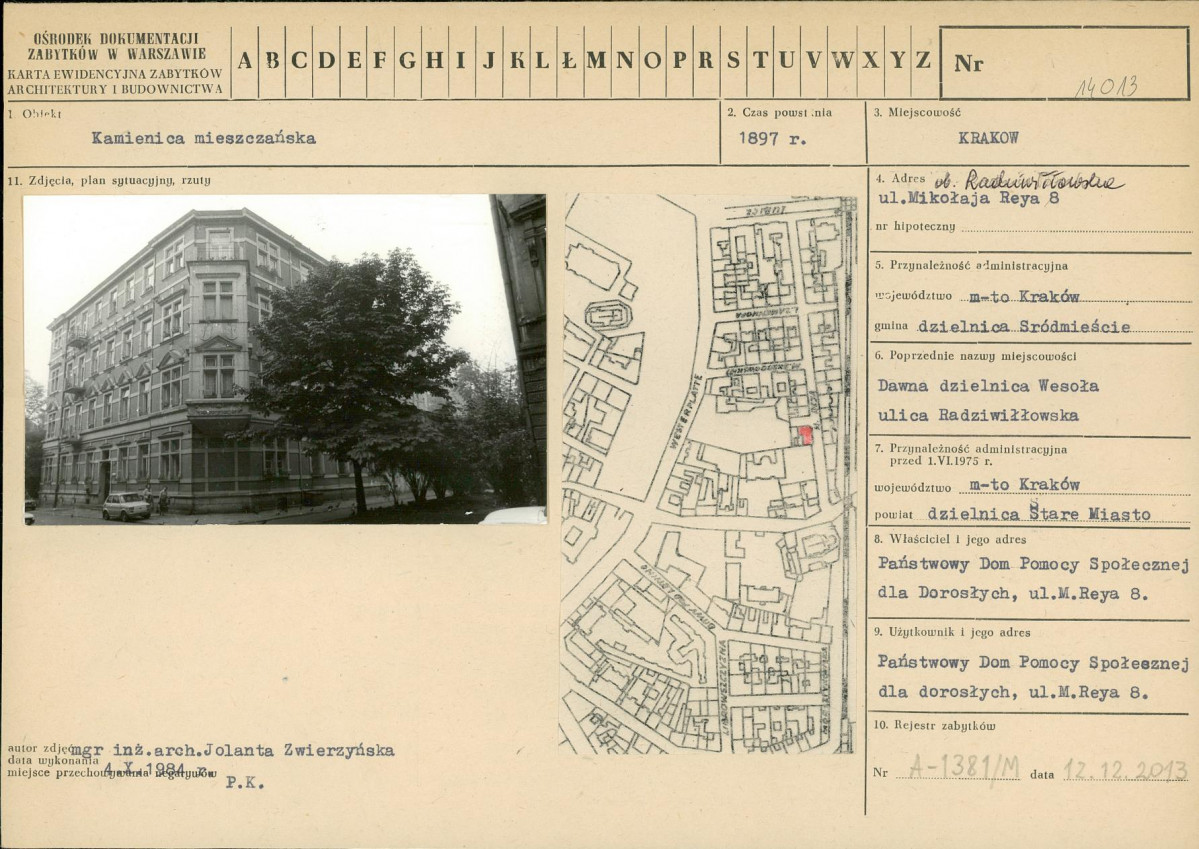 OŚRODEK DOKUMENTACJI
ZABYTKÓW W WARSZAWIE
KARTA EWIDENCYJNA ZABYTKÓW
ARCHITEKTURY I BUDOWNICTWA
A B C D E F G H I J K L Ł M N O P R S T U V W X Y Z
Nr
14013
1. Obiekt
Kamienica mieszczańska
2. Czas powstania
1897 r.
3. Miejscowość
KRAKOW
11. Zdjęcia, plan sytuacyjny, rzuty
WESTERPLATTE
LIBROWSZCZYZNA
4. Adres ob. Radziwiłłowska
ul.Mikołaja Reya 8
nr hipoteczny
5. Przynależność administracyjna
województwo m-to Kraków
gmina dzielnica Sródmieście
6. Poprzednie nazwy miejscowości
Dawna dzielnica Wesoła
ulica Radziwiłłowska
7. Przynależność administracyjna
przed 1.VI.1975 r.
województwo m-to Kraków
powiat dzielnica Stare Miasto
8. Właściciel i jego adres
Państwowy Dom Pomocy Społecznej
dla Dorosłych, ul.M.Reya 8.
9. Użytkownik i jego adres
Państwowy Dom Pomocy Społesznej
dla dorosłych, ul.M.Reya 8.
10. Rejestr zabytków
Nr A-1381/M data 12.12.2013
autor zdjęć mgr inż.arch.Jolanta Zwierzyńska
data wykonania
4.X.1984 r.
miejsce przechowywania negatywów
P.K.